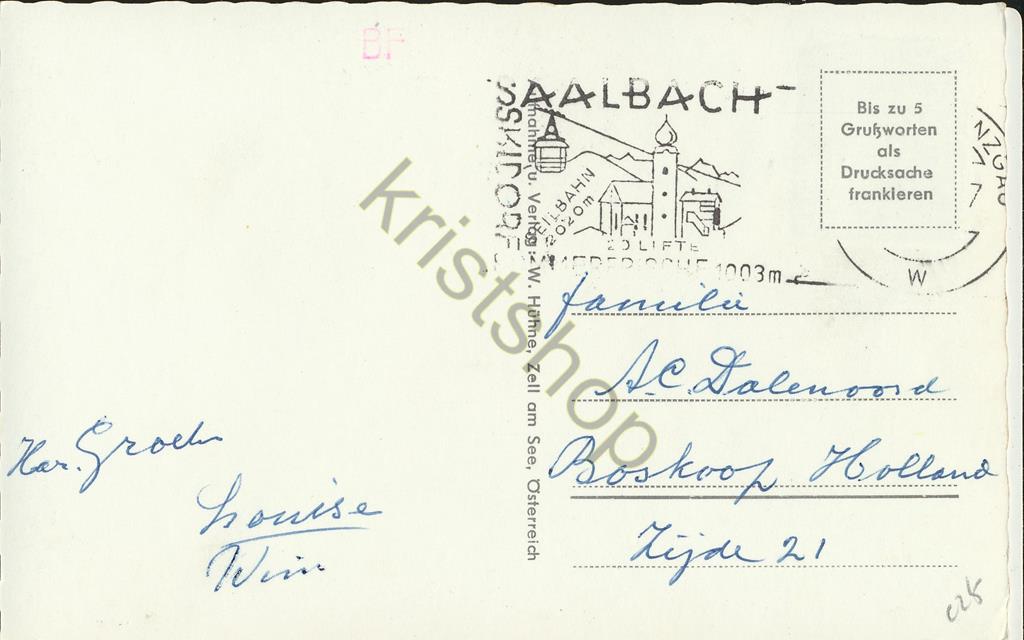 BF
SAALBACH
SSKIDORF
SEILBAHN
2020m
20 LIFTE
1003m
Bis zu 5
Grußworten
als
Drucksache
frankieren
NZGAU
7
W
Aufnahme u. Verlag: W. Hühne, Zell am See, Österreich
kristshop
familie
A.C. Dalenoord
Boskoop Holland
Zijde 21
Har. Groeten
Louise
Wim